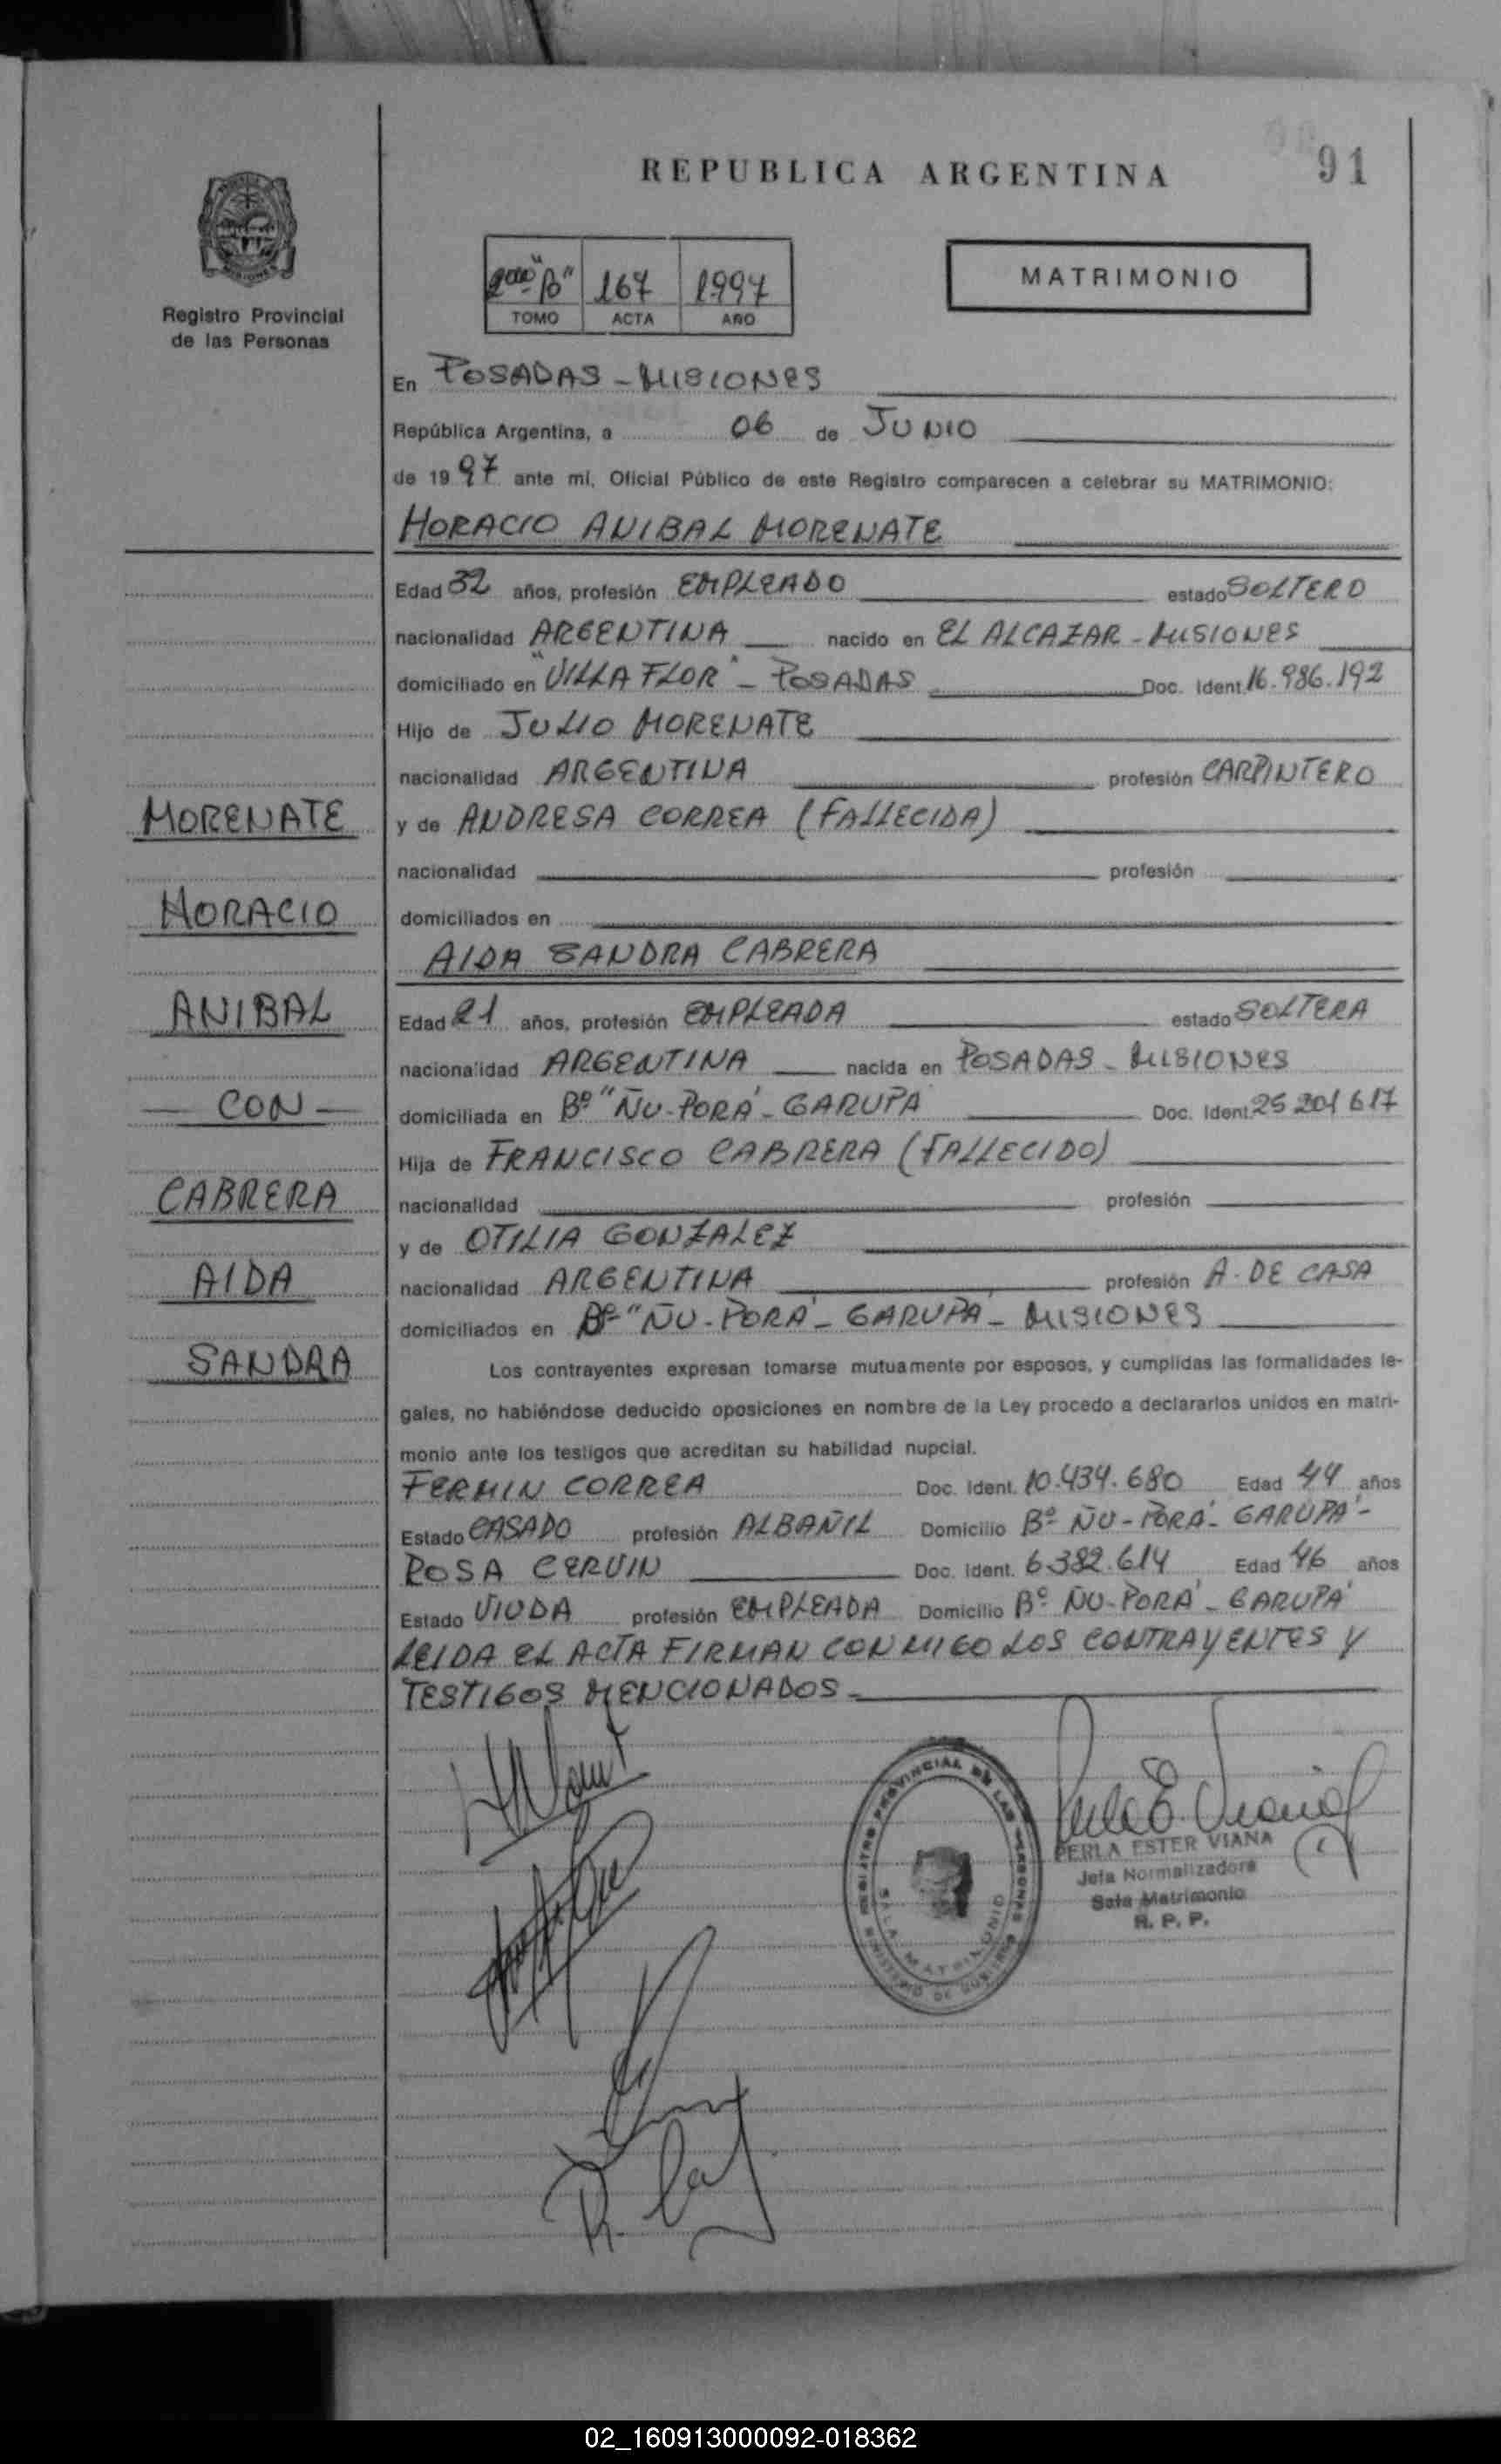 91
REPUBLICA ARGENTINA
Registro Provincial
de las Personas
2do "B" 167 1997
TOMO ACTA AÑO
MATRIMONIO
En POSADAS - MISIONES
República Argentina, a 06 de JUNIO
de 1997 ante mi, Oficial Público de este Registro comparecen a celebrar su MATRIMONIO:
HORACIO ANIBAL MORENATE
Edad 32 años, profesión EMPLEADO estado SOLTERO
nacionalidad ARGENTINA nacido en EL ALCAZAR - MISIONES
domiciliado en "VILLA FLOR" - POSADAS Doc. Ident. 16.986.192
Hijo de JULIO MORENATE
nacionalidad ARGENTINA profesión CARPINTERO
MORENATE
y de ANDRESA CORREA (FALLECIDA)
nacionalidad profesión
HORACIO
domiciliados en
AIDA SANDRA CABRERA
ANIBAL
Edad 21 años, profesión EMPLEADA estado SOLTERA
nacionalidad ARGENTINA nacida en POSADAS - MISIONES
- CON -
domiciliada en Bº "ÑU-PORÁ - GARUPA Doc. Ident. 25 201 617
Hija de FRANCISCO CABRERA (FALLECIDO)
CABRERA
nacionalidad profesión
y de OTILIA GONZALEZ
AIDA
nacionalidad ARGENTINA profesión A. DE CASA
domiciliados en Bº "ÑU-PORÁ - GARUPÁ - MISIONES
SANDRA
Los contrayentes expresan tomarse mutuamente por esposos, y cumplidas las formalidades le-
gales, no habiéndose deducido oposiciones en nombre de la Ley procedo a declararlos unidos en matri-
monio ante los testigos que acreditan su habilidad nupcial.
FERMIN CORREA Doc. Ident. 10.434.680 Edad 44 años
Estado CASADO profesión ALBAÑIL Domicilio Bº ÑU-PORÁ - GARUPÁ -
ROSA CERVIN Doc. Ident. 6.382.614 Edad 46 años
Estado VIUDA profesión EMPLEADA Domicilio Bº ÑU-PORÁ - GARUPÁ
LEIDA EL ACTA FIRMAN CONMIGO LOS CONTRAYENTES Y
TESTIGOS MENCIONADOS -
REGISTRO PROVINCIAL DE LAS PERSONAS
SALA MATRIMONIO
MINISTERIO DE GOBIERNO
PERLA ESTER VIANA
Jefa Normalizadora
Sala Matrimonio
R. P. P.
02_160913000092-018362